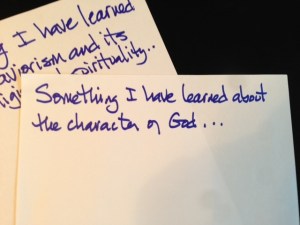 g I have learned
aviorism and its
spirituality..
Something I have learned about
the character of God...